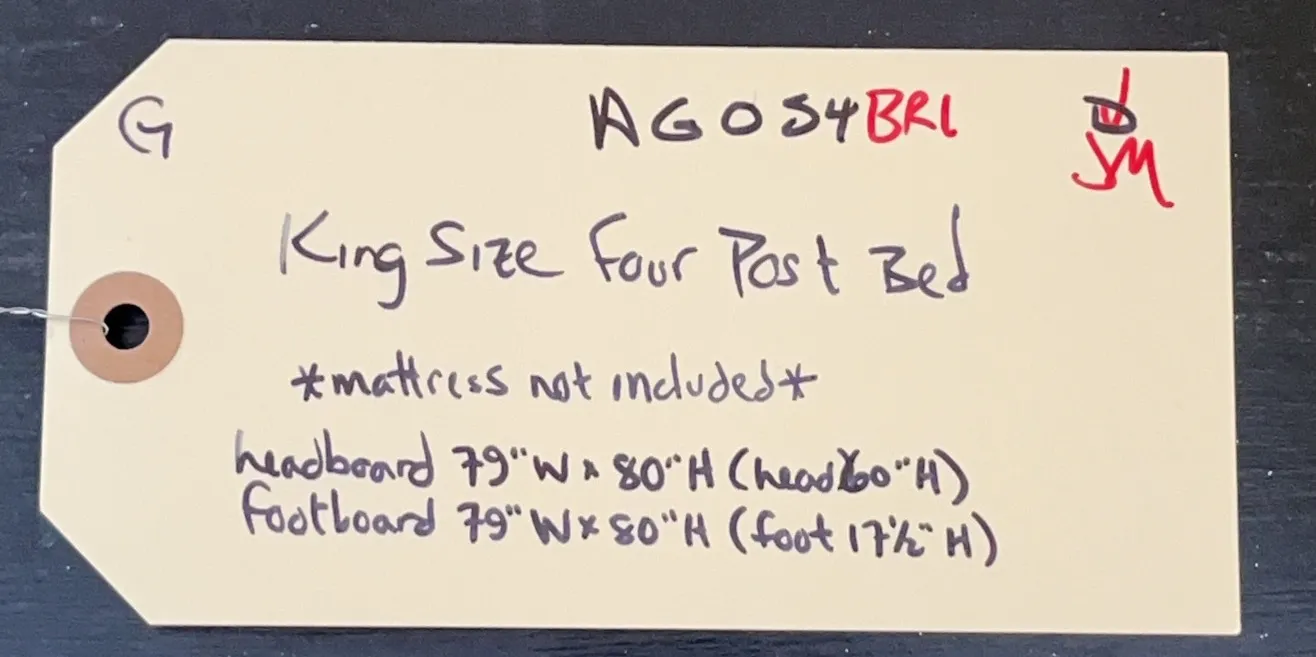 G
AG054BR1
D
JM
King Size Four Post Bed
*mattress not included*
headboard 79"W x 80"H (head 60"H)
footboard 79"W x 80"H (foot 17½"H)